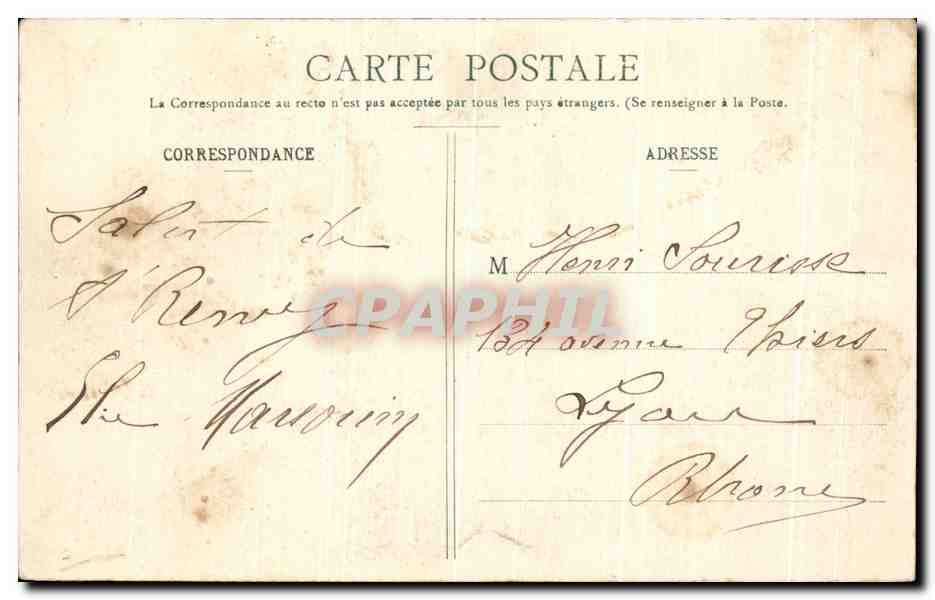 CARTE POSTALE
La Correspondance au recto n'est pas acceptée par tous les pays étrangers. (Se renseigner à la Poste.
CORRESPONDANCE
Salut de
St Remy
Elie
ADRESSE
M Henri Sourisse
134 avenue Thiers
Lyon
Rhone
CPAPHIL